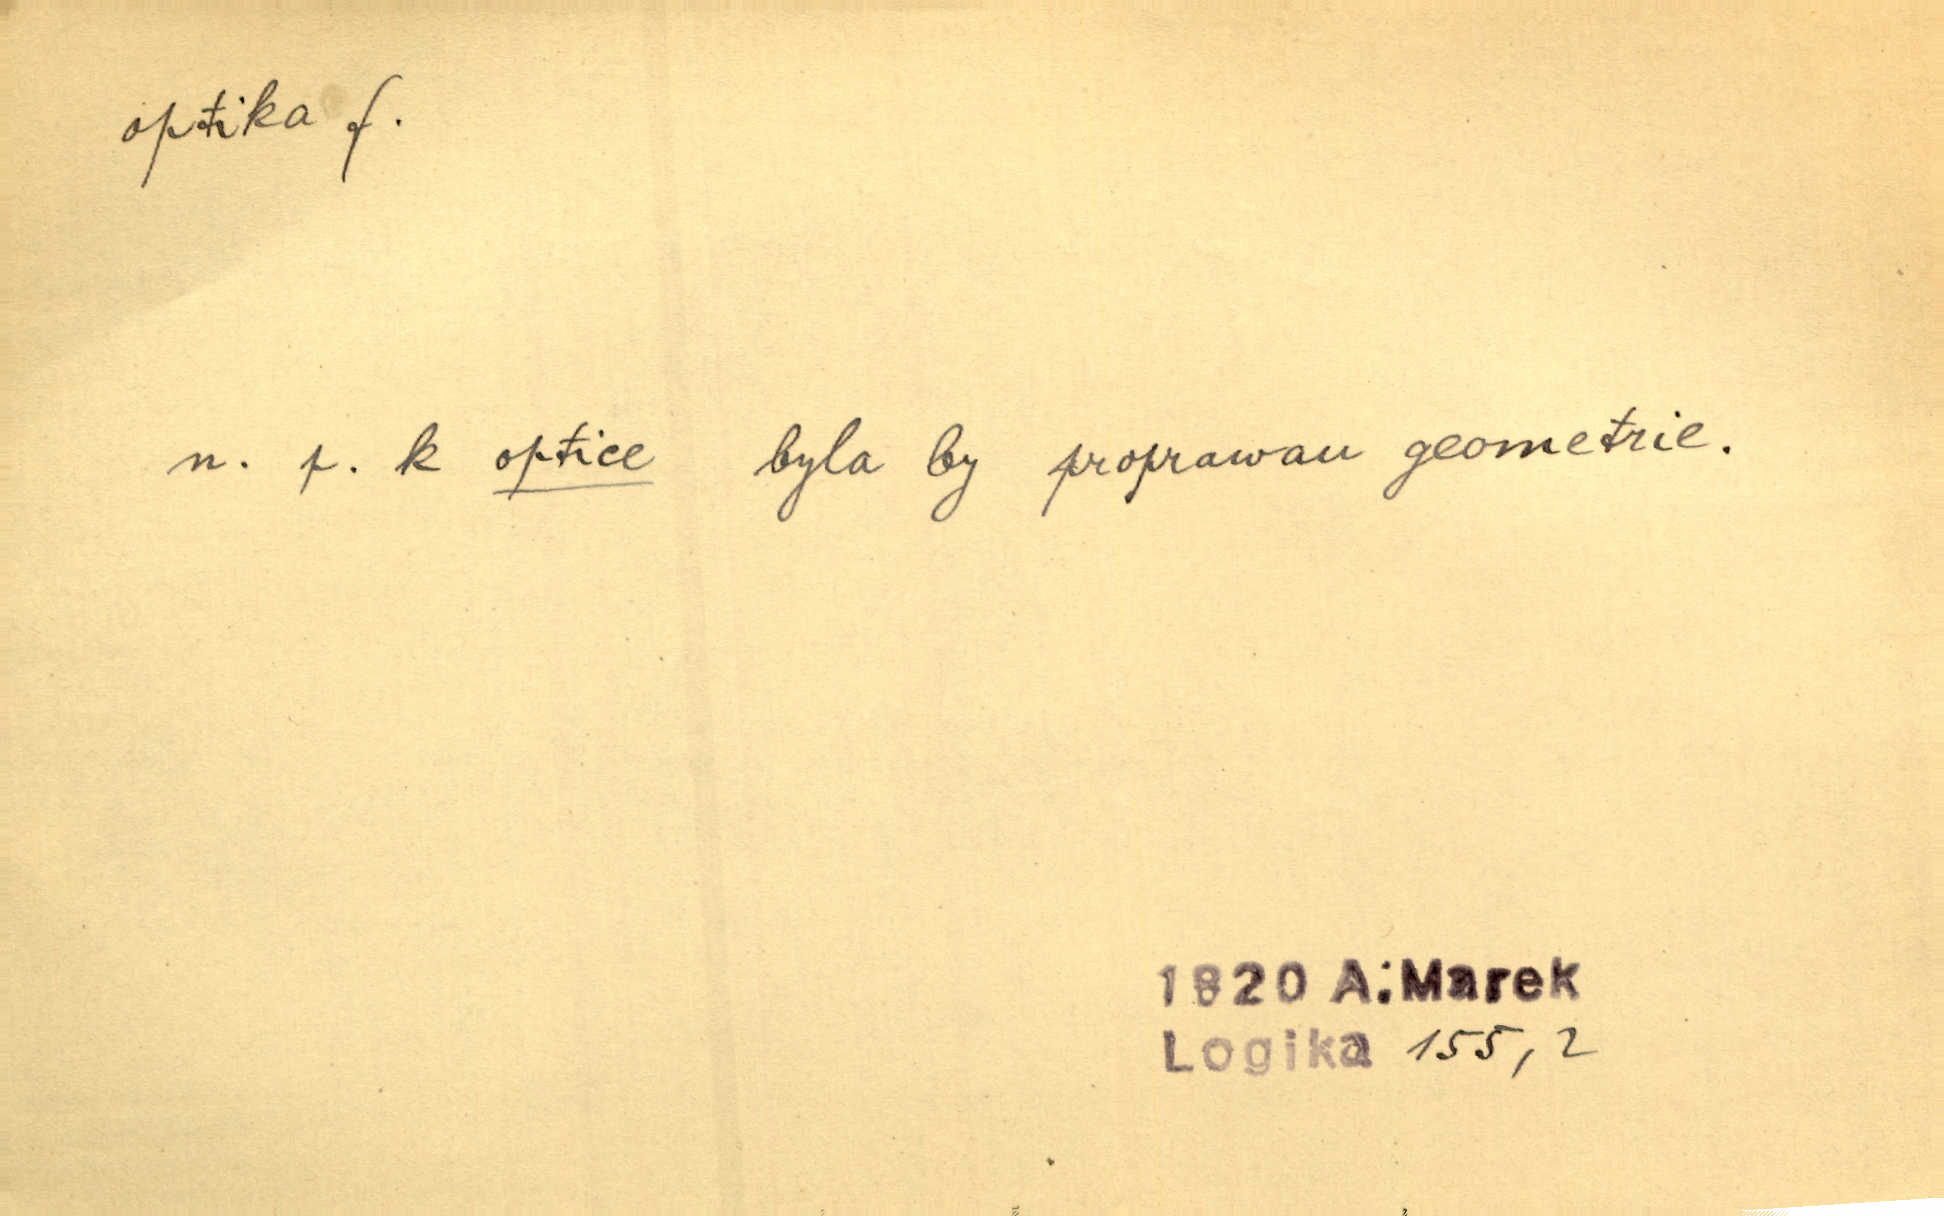 optika f.
n. p. k optice byla by proprawau geometrie.
1820 A. Marek
Logika 155, 2